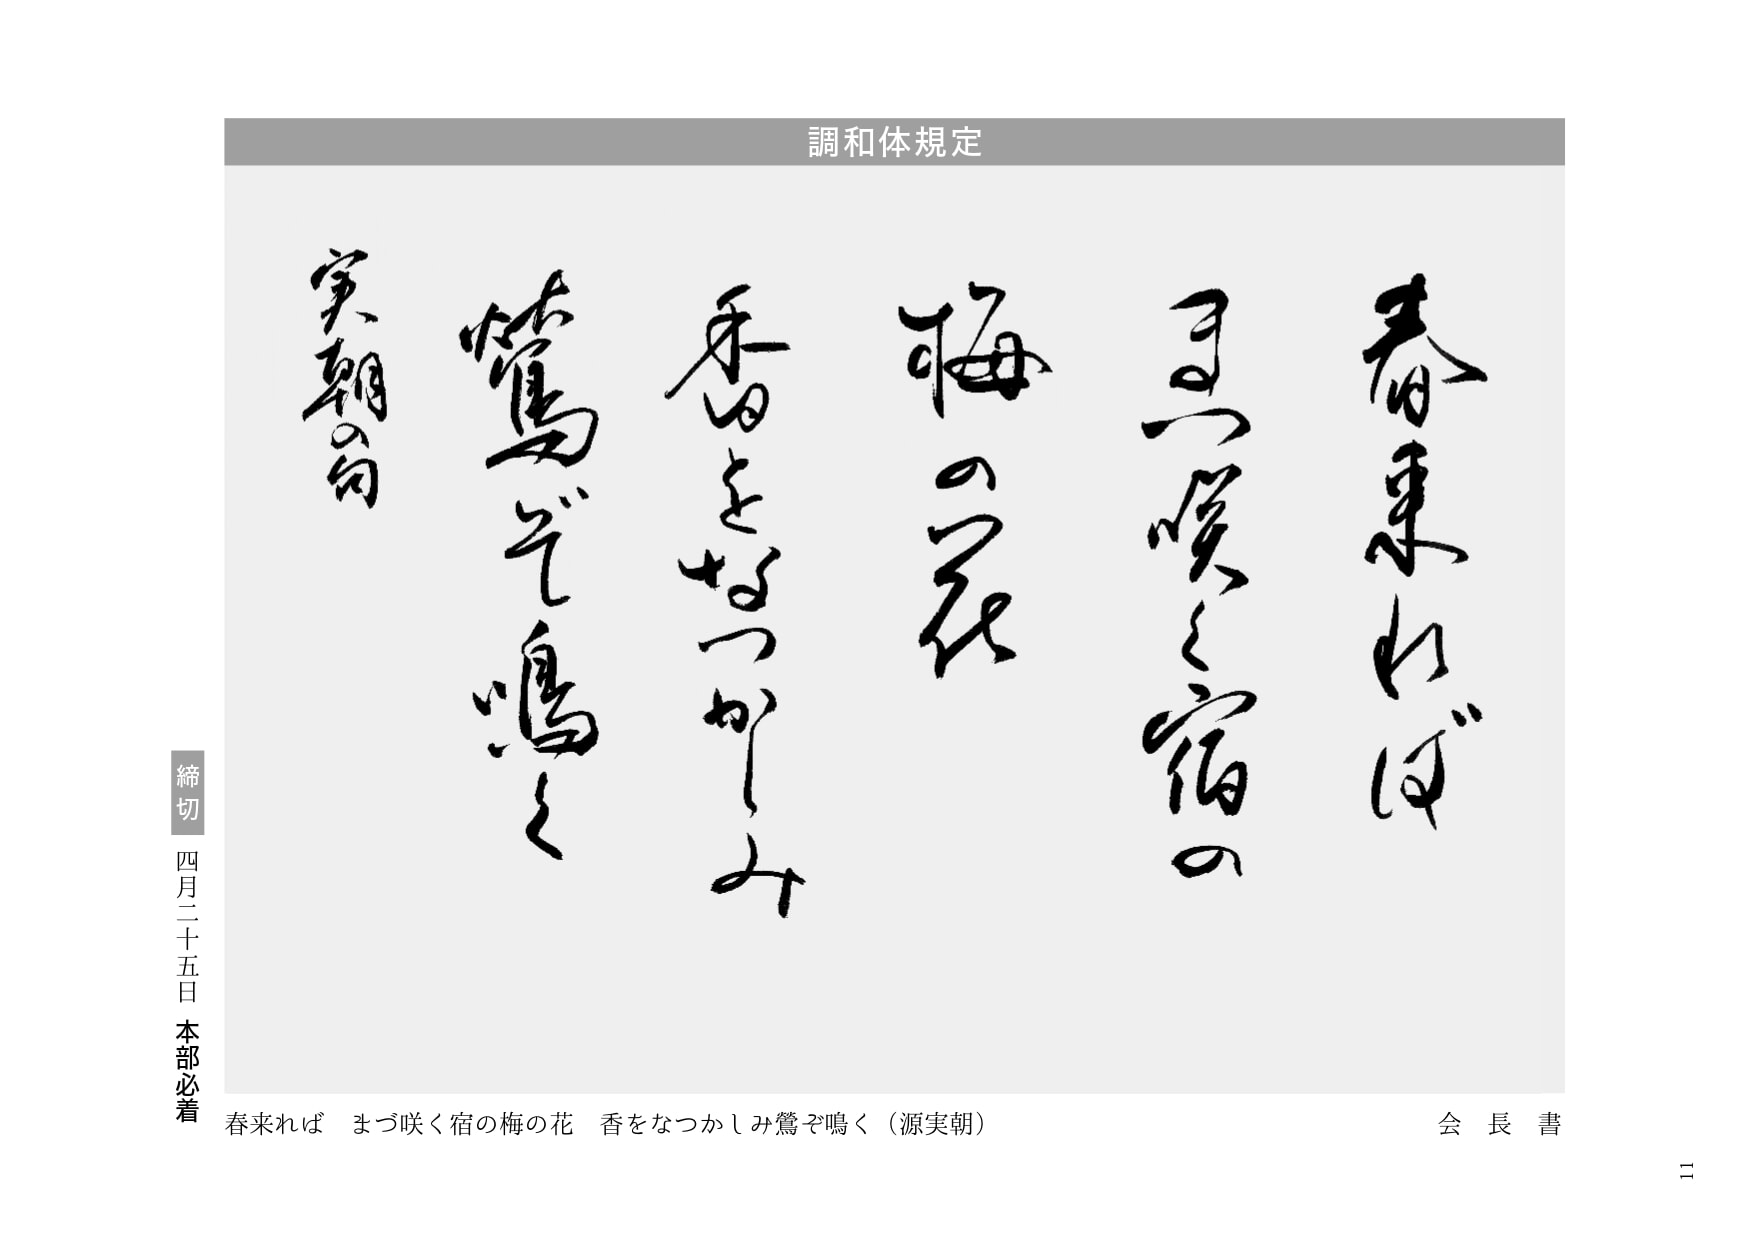 調和体規定
春来れば
まつ咲く宿の
梅の花
香をなつかしみ
鶯ぞ鳴く
実朝の句
締切 四月二十五日 本部必着
春来れば　まづ咲く宿の梅の花　香をなつかしみ鶯ぞ鳴く（源実朝）
会長書
11